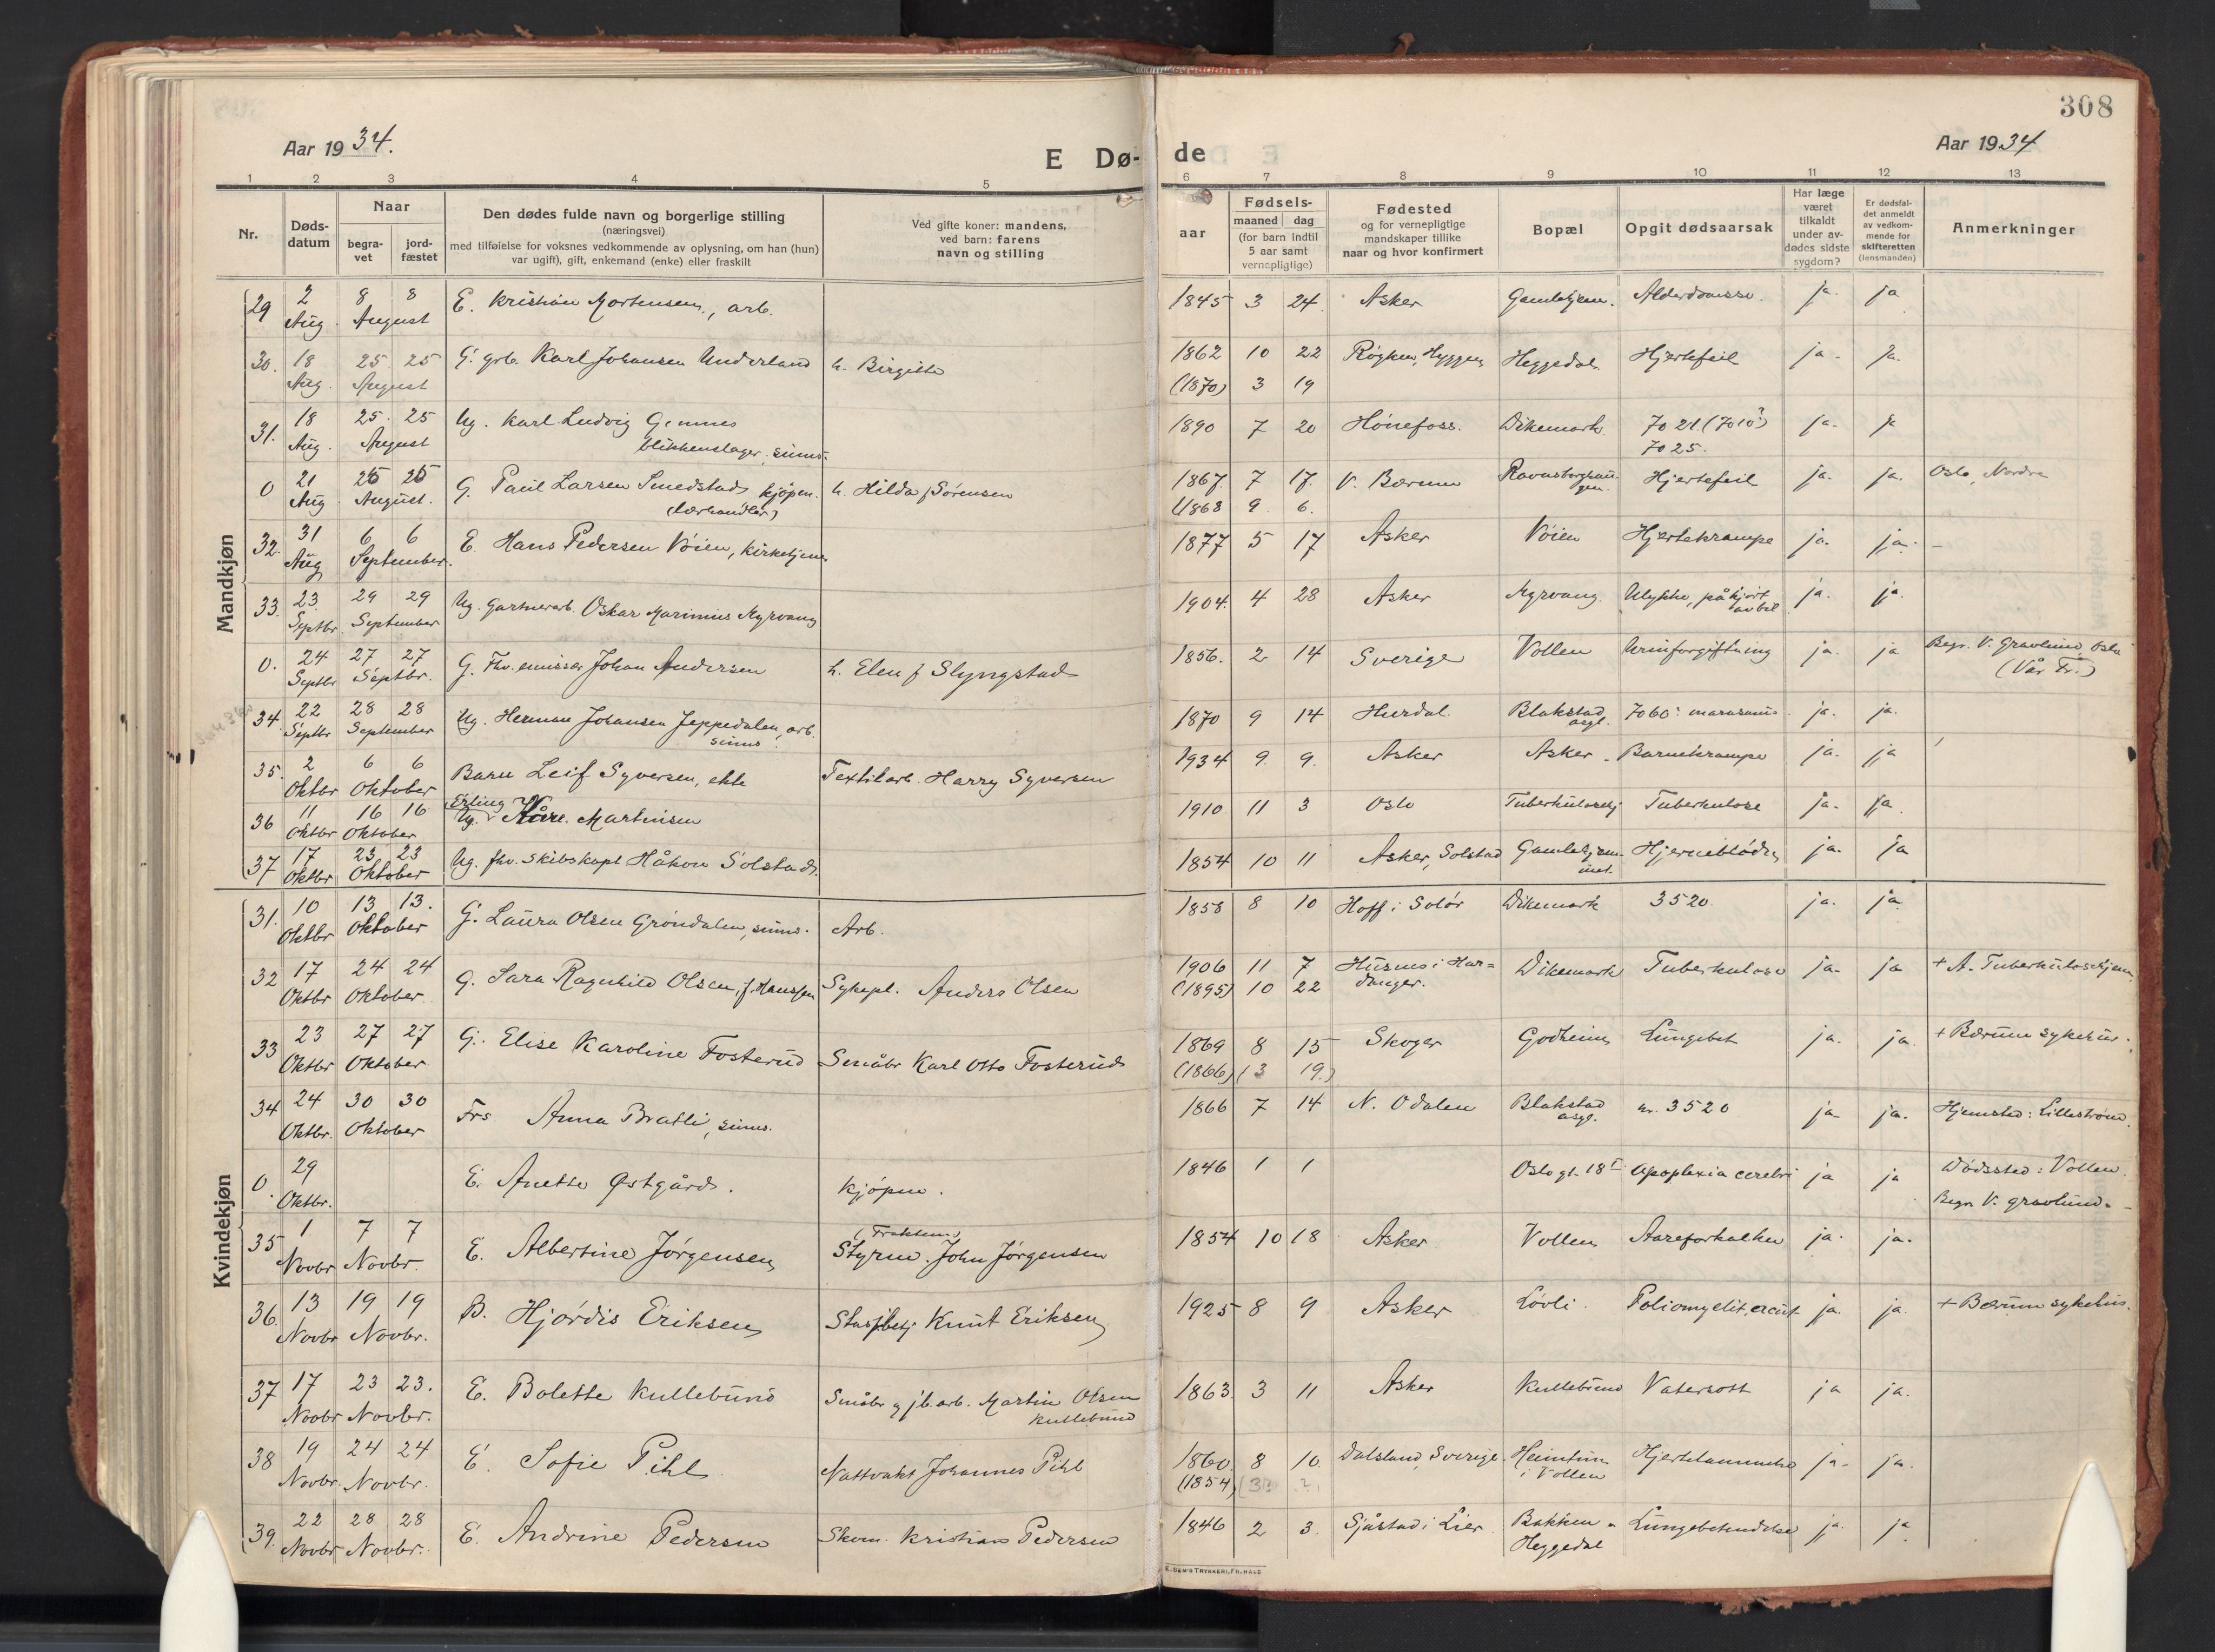 308
Aar 1934.
E Dø-
de
Aar 1934
1 2 3 4 5 6 7 8 9 10 11 12 13
Nr.
Døds-
datum
Naar
begra-
vet
jord-
fæstet
Den dødes fulde navn og borgerlige stilling
(næringsvei)
med tilføielse for voksnes vedkommende av oplysning, om han (hun)
var ugift), gift, enkemand (enke) eller fraskilt
Ved gifte koner: mandens,
ved barn: farens
navn og stilling
Fødsels-
aar
maaned dag
(for barn indtil
5 aar samt
vernepligtige)
Fødested
og for vernepligtige
mandskaper tillike
naar og hvor konfirmert
Bopæl
Opgit dødsaarsak
Har læge
været
tilkaldt
under av-
dødes sidste
sygdom?
Er dødsfal-
det anmeldt
av vedkom-
mende for
skifteretten
(lensmanden)
Anmerkninger
Mandkjøn
29 2 Aug. 8 8 August E. Kristian Mortensen, arb. 1845 3 24 Asker Gamlehjem. ja. ja
30. 18 Aug. 25 25 August G. grb. Karl Johansen Underland h. Birgitte 1862 10 22 Røyken, Hyggen Heggedal Hjertefeil ja. ja.
(1870) 3 19
31. 18 Aug. 25. 25 August Ug. Karl Ludvig
blikkenslager, sinns. 1890 7 20 Hønefoss. Dikemark 7021 (7010?) ja.
7025.
0 21 Aug. August. G. Paul Larsen Smedstad, kjøpm. h. Hilda f Sørensen 1867. 7 17. V. Bærum Hjertefeil ja. ja. Oslo, Nordre
(lærhandler) 1868 9. 6.
32. 31 Aug 6 6 September. E. Hans Pedersen Vøien, kirketjener 1877 5 17 Asker Vøien Hjertekrampe ja. ja. –
33. 23. Septbr. 29 29 September Ug. Gartnerarb. Oskar Marinius Myrvang 1904. 4 28 Asker Myrvang. Ulykke, påkjørt ja. ja.
av bil
0. 24 Septbr 27 27 Septbr. G. Fhv. emissær Johan Andersen h. Elen f Slyngstad 1856. 2 14 Sverige Vollen Urinforgiftning ja. ja Begr. V. Gravlund, Oslo
(Vår Fr.)
34. 22 Septbr 28 28 September Ug. Herman Johansen Jeppedalen, arb. 1870 9 14 Hurdal. Blakstad 7060: ja. ja.
sinns. asyl.
35. 2 Oktbr 6 6 Oktober Barn Leif Syversen, ekte Textilarb. Harry Syversen 1934 9. 9. Asker Asker Barnekrampe ja. ja
Erling
36 11 Oktbr 16 16 Oktober Ug. Kåre. Martinsen 1910 11 3 Oslo Tuberkulosehj Tuberkulose ja. ja.
37 17 Oktbr 23 23 Oktober Ug. fhv. skibskapt Håkon Solstad. 1854 10 11 Asker, Solstad Gamlehjem- Hjerneblødn. ja. ja
met.
Kvindekjøn
31. 10 Oktbr 13 13. Oktober G. Laura Olsen Grøndalen, sinns. Arb. 1858 8 10 Hoff i Solør Dikemark 3520. ja. ja
32 17 Oktbr 24 24 Oktober G. Sara Ragnhild Olsen, f. Hanssen Sykepl. Anders Olsen 1906 11 7 Husnes i Har= Dikemark Tuberkulose ja. ja + A. Tuberkulosehjem
(1895) 10 22 danger.
33 23 Oktbr 27 27 Oktober G. Elise Karoline Fosterud Småbr Karl Otto Fosterud 1869 8 15 Skoger Godheim Lungebet ja. ja. + Bærum sykehus.
(1866) (3 19.)
34 24 Oktbr. 30 30 Oktober Frs Anna Bratli, sinns. 1866 7 14 N. Odalen Blakstad nr. 3520 ja ja. Hjemsted: Lillestrøm.
asyl.
0. 29 Oktbr. E. Anette Østgård. Kjøpm. 1846 1 1 Oslo gt. 18 I Apoplexia cerebri ja ja Dødssted: Vollen.
Begr V. gravlund.
35 1 Novbr 7 7 Novbr. E. Albertine Jørgensen Styrm. John Jørgensen 1854 10 18 Asker Vollen Aareforkalkn ja. ja.
36. 13 Novbr 19 19 Novbr. B. Hjørdis Eriksen Knut Eriksen 1925 8 9 Asker Løvli. Poliomyelit. acut ja. ja. + Bærum sykehus.
37 17 Novbr 23 23. Novbr. E. Bolette Kullebund Småbr og jb.arb. Martin Olsen 1863. 3 11 Asker Kullebund Vatersott ja ja.
Kullebund
38 19 Novbr. 24 24 Novbr. E. Sofie Pihl Nattvakt Johannes Pihl 1860. 8 10. Dalsland, Sverige. Heimtun Hjertelammelse ja. ja.
(1854) i Vollen
39. 22 Novbr 28 28 Novbr. E. Andrine Pedersen Skom. Kristian Pedersen 1846 2 3. Sjåstad i Lier Bakken Lungebetendelse ja. ja.
Heggedal
E. SEM'S TRYKKERI, FR.HALD